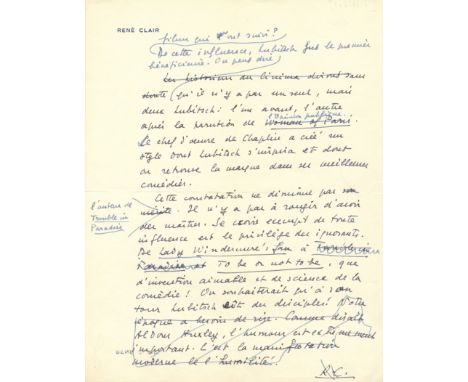 RENÉ CLAIR
films qui ont suivi?
De cette influence, Lubitsch fut le premier
bénéficiaire. On peut dire
Les historiens du cinéma diront sans
doute qu'il n'y a pas un seul, mais
deux Lubitsch: l'un avant, l'autre
l'Opinion publique.
après la parution de Woman of Paris
Le chef d'œuvre de Chaplin a créé un
style dont Lubitsch s'inspira et dont
on retrouve la marque dans ses meilleures
comédies.
Cette constatation ne diminue pas son
l'auteur de
Trouble in
Paradise
mérite. Il n'y a pas à rougir d'avoir
des maîtres. Se croire exempt de toute
influence est le privilège des ignorants.
De Lady Windermere's fan à
To be or not to be, que
d'invention aimable et de science de la
comédie! On souhaiterait qu'à son
tour Lubitsch eût des disciples! Notre
époque a besoin de rire. Comme disait
Aldous Huxley, l'humour est extrêmement
important. C'est la manifestation
moderne de l'humilité.
R.C.